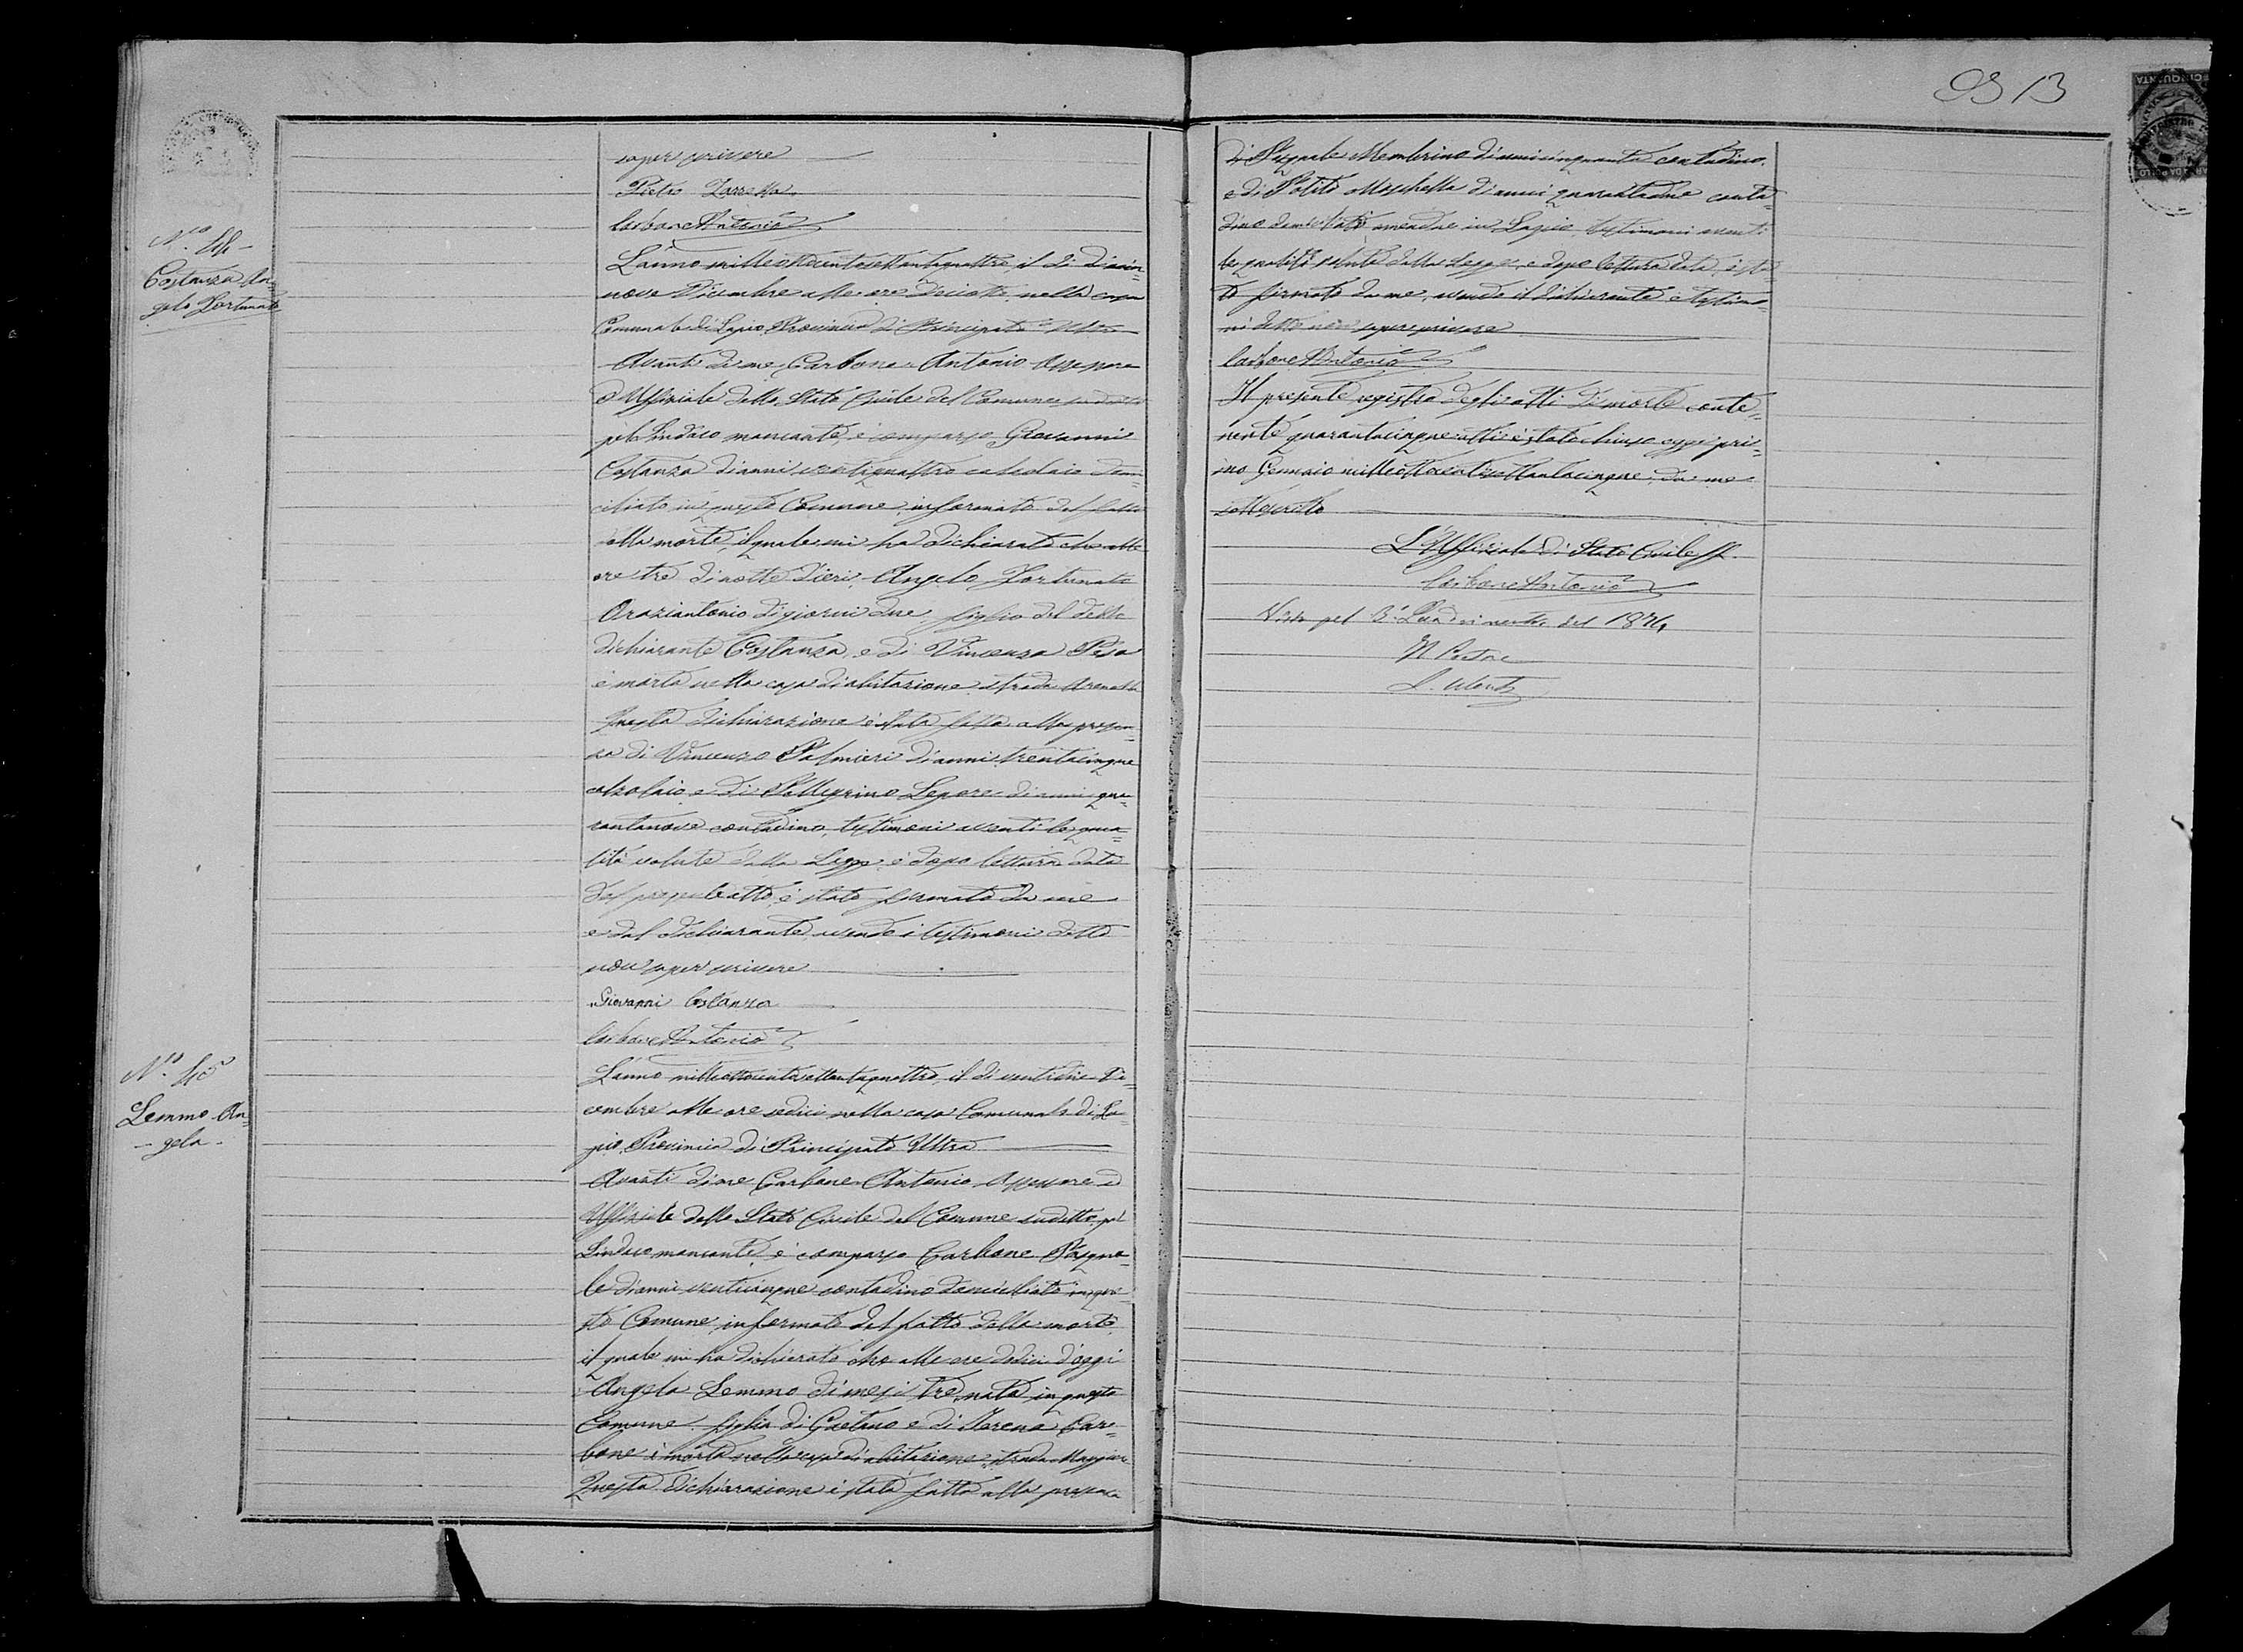 saper scrivere
Pietro Zarrella
Carbone Antonio
N.ro 44
Costanza An=
gelo Fortunato
L'anno milleottocentosettantaquattro, il dì dician=
nove Dicembre alle ore diciotto nella casa
Comunale di Lapio Provincia di Principato Ultra
Avanti di me Carbone Antonio Assessore
ed Uffiziale dello Stato Civile del Comune sudetto
pel Sindaco mancante, è comparso Giovanni
Costanza d'anni ventiquattro calzolaio domi=
ciliato in questo Comune, informato del fatto
della morte, il quale mi ha dichiarato che alle
ore tre di notte d'ieri, Angelo Fortunato
Oraziantonio di giorni due, figlio del detto
dichiarante Costanza, e di Vincenza Pesa
è morto nella casa d'abitazione strada
Questa dichiarazione è stata fatta alla presen=
za di Vincenzo Palmieri d'anni trentacinque
calzolaio, e di Pellegrino Lepore d'anni qua=
rantanove contadino, testimoni aventi le qua=
lità volute dalla Legge, e dopo lettura data
del presente atto, è stato firmato da me
e dal dichiarante, avendo i testimoni detto
non saper scrivere
Giovanni Costanza
Carbone Antonio
N.ro 45
Lemmo An=
gela
L'anno milleottocentosettantaquattro, il dì ventitre Di=
cembre alle ore sedici nella casa Comunale di La=
pio, Provincia di Principato Ultra
Avanti di me Carbone Antonio Assessore ed
Uffiziale dello Stato Civile del Comune sudetto, pel
Sindaco mancante, è comparso Carbone Pasqua=
le d'anni venticinque contadino domiciliato in que=
sto Comune, informato del fatto della morte,
il quale mi ha dichiarato che alle ore dodici d'oggi
Angela Lemmo di mesi tre, nata in questo
Comune, figlia di Gaetano e di Serena Car=
bone è morta nella casa d'abitazione strada Maggiore
Questa dichiarazione è stata fatta alla presenza
93 13
di Pasquale Membrino d'anni cinquanta contadino,
e di Potito Moschella d'anni quarantadue conta=
dino domiciliati amendue in Lapio, testimoni aventi
le qualità volute dalla Legge, e dopo lettura data, è sta=
to firmato da me, avendo il dichiarante e testimo=
ni detto non sapere scrivere
Carbone Antonio
Il presente registro degli atti di morte conte=
nente quarantacinque atti è stato chiuso oggi pri=
mo Gennaio milleottocentosettantacinque, da me
sottoscritto
L'Uffiziale di Stato Civile ff.
Carbone Antonio
Visto pel 3° Quadrimestre del 1874
Il Pretore